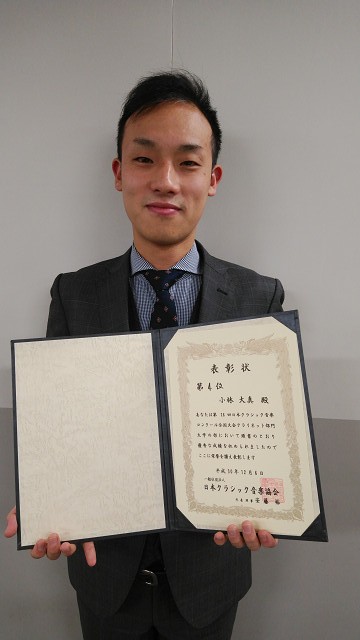 表彰状
第4位
小林 大真 殿
あなたは第
日本クラシック音楽
コンクール全国大会クラリネット部門
大学の部において頭書のとおり
優秀な成績をおさめられましたので
ここに栄誉を讃え表彰します
平成
一般社団法人
日本クラシック音楽協会